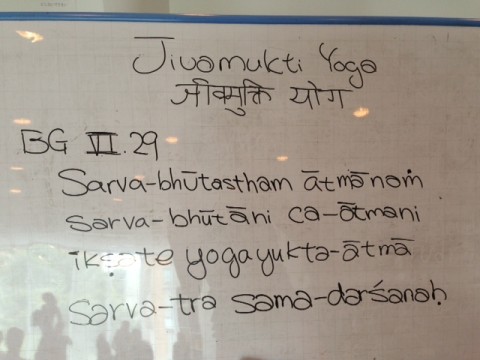 Jivamukti Yoga
जीवमुक्ति योग
BG VI.29
Sarva-bhūtastham ātmānaṁ
sarva-bhūtāni ca-ātmani
ikṣate yogayukta-ātmā
sarva-tra sama-darśanaḥ